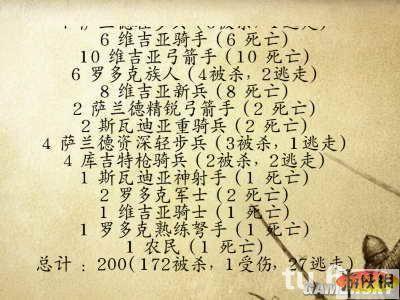 6 维吉亚骑手 (6 死亡)
10 维吉亚弓箭手 (10 死亡)
6 罗多克族人 (4被杀, 2逃走)
8 维吉亚新兵 (8 死亡)
2 萨兰德精锐弓箭手 (2 死亡)
2 斯瓦迪亚重骑兵 (2 死亡)
4 萨兰德资深轻步兵 (3被杀, 1逃走)
4 库吉特枪骑兵 (2被杀, 2逃走)
1 斯瓦迪亚神射手 (1 死亡)
2 罗多克军士 (2 死亡)
1 维吉亚骑士 (1 死亡)
1 罗多克熟练弩手 (1 死亡)
1 农民 (1 死亡)
总计 : 200(172被杀, 1受伤, 27逃走)
游侠网